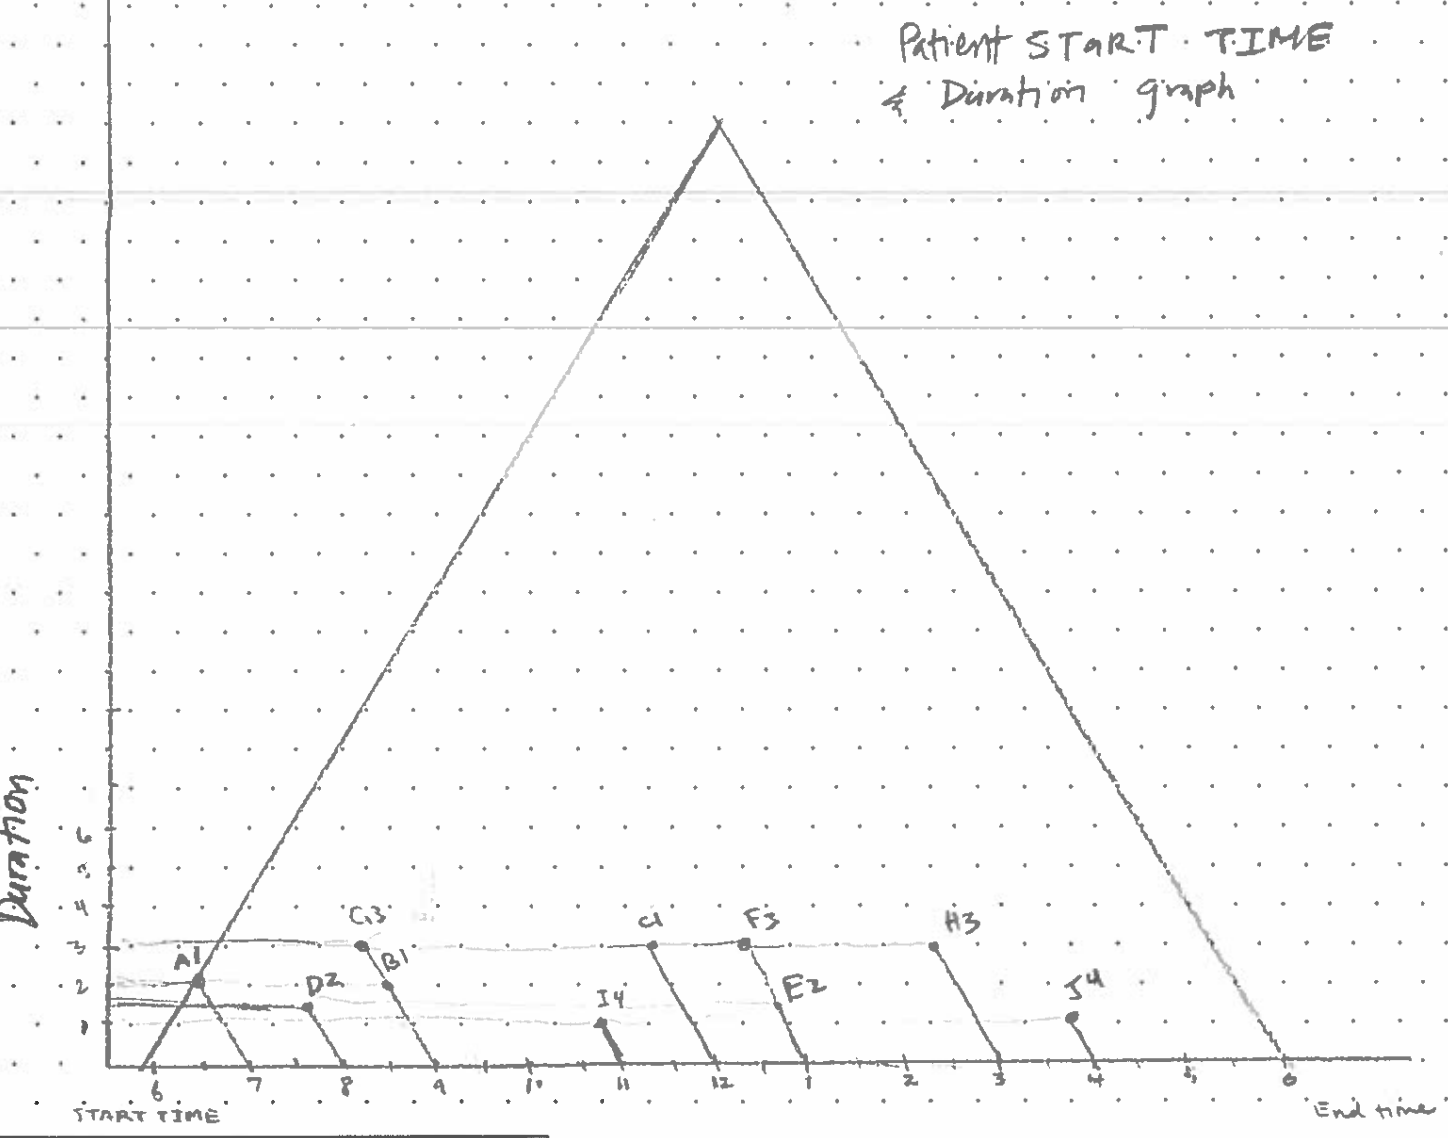 Patient START TIME
& Duration graph
Duration
6
5
4
3
2
1
G3
C1
F3
H3
A1
B1
D2
E2
I4
J4
6 7 8 9 10 11 12 1 2 3 4 5 6
START TIME
End time